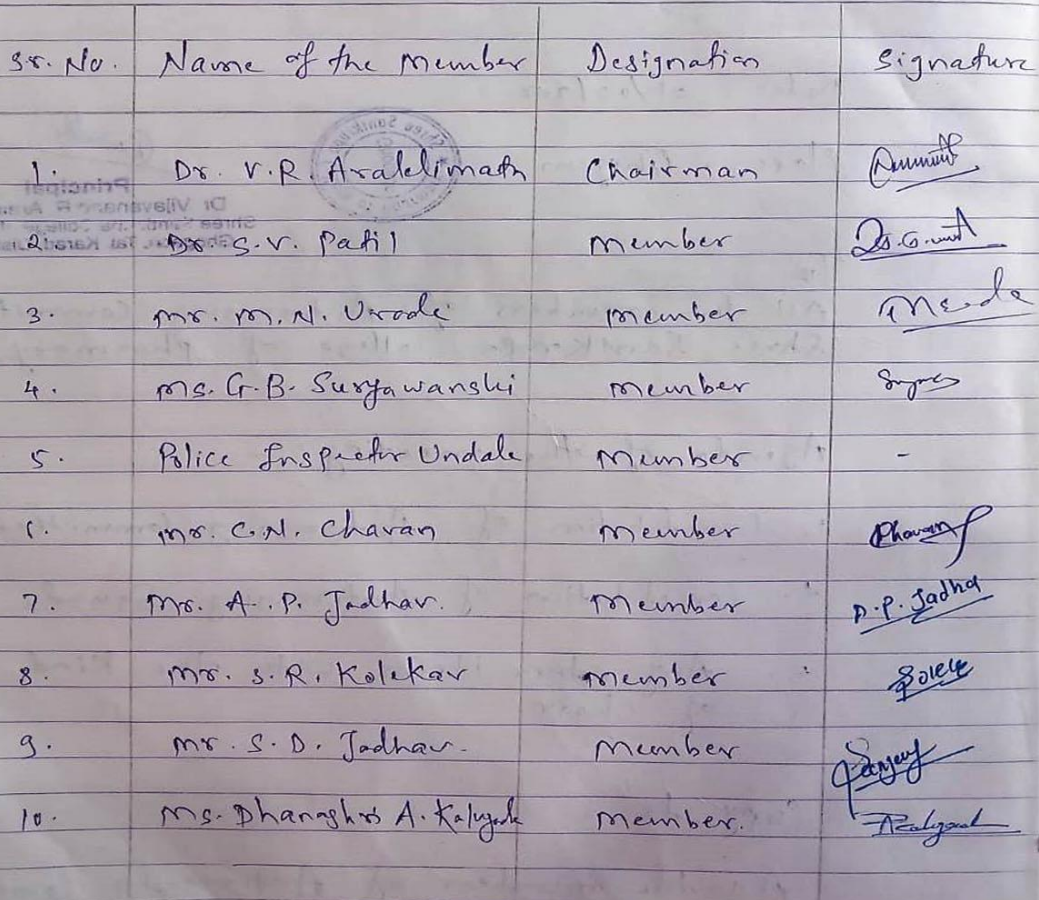 Sr. No. Name of the Member Designation Signature
1. Dr. V.R. Aralelimath Chairman
2. Dr. S.V. Patil Member
3. Mr. M.N. Urade Member
4. Ms. G.B. Suryawanshi Member
5. Police Inspector Undale Member -
6. Mr. C.N. Chavan Member
7. Mr. A.P. Jadhav. Member A.P. Jadha
8. Mr. S.R. Kolekar Member
9. Mr. S.D. Jadhav. Member
10. Ms. Dhanashri A. Member.